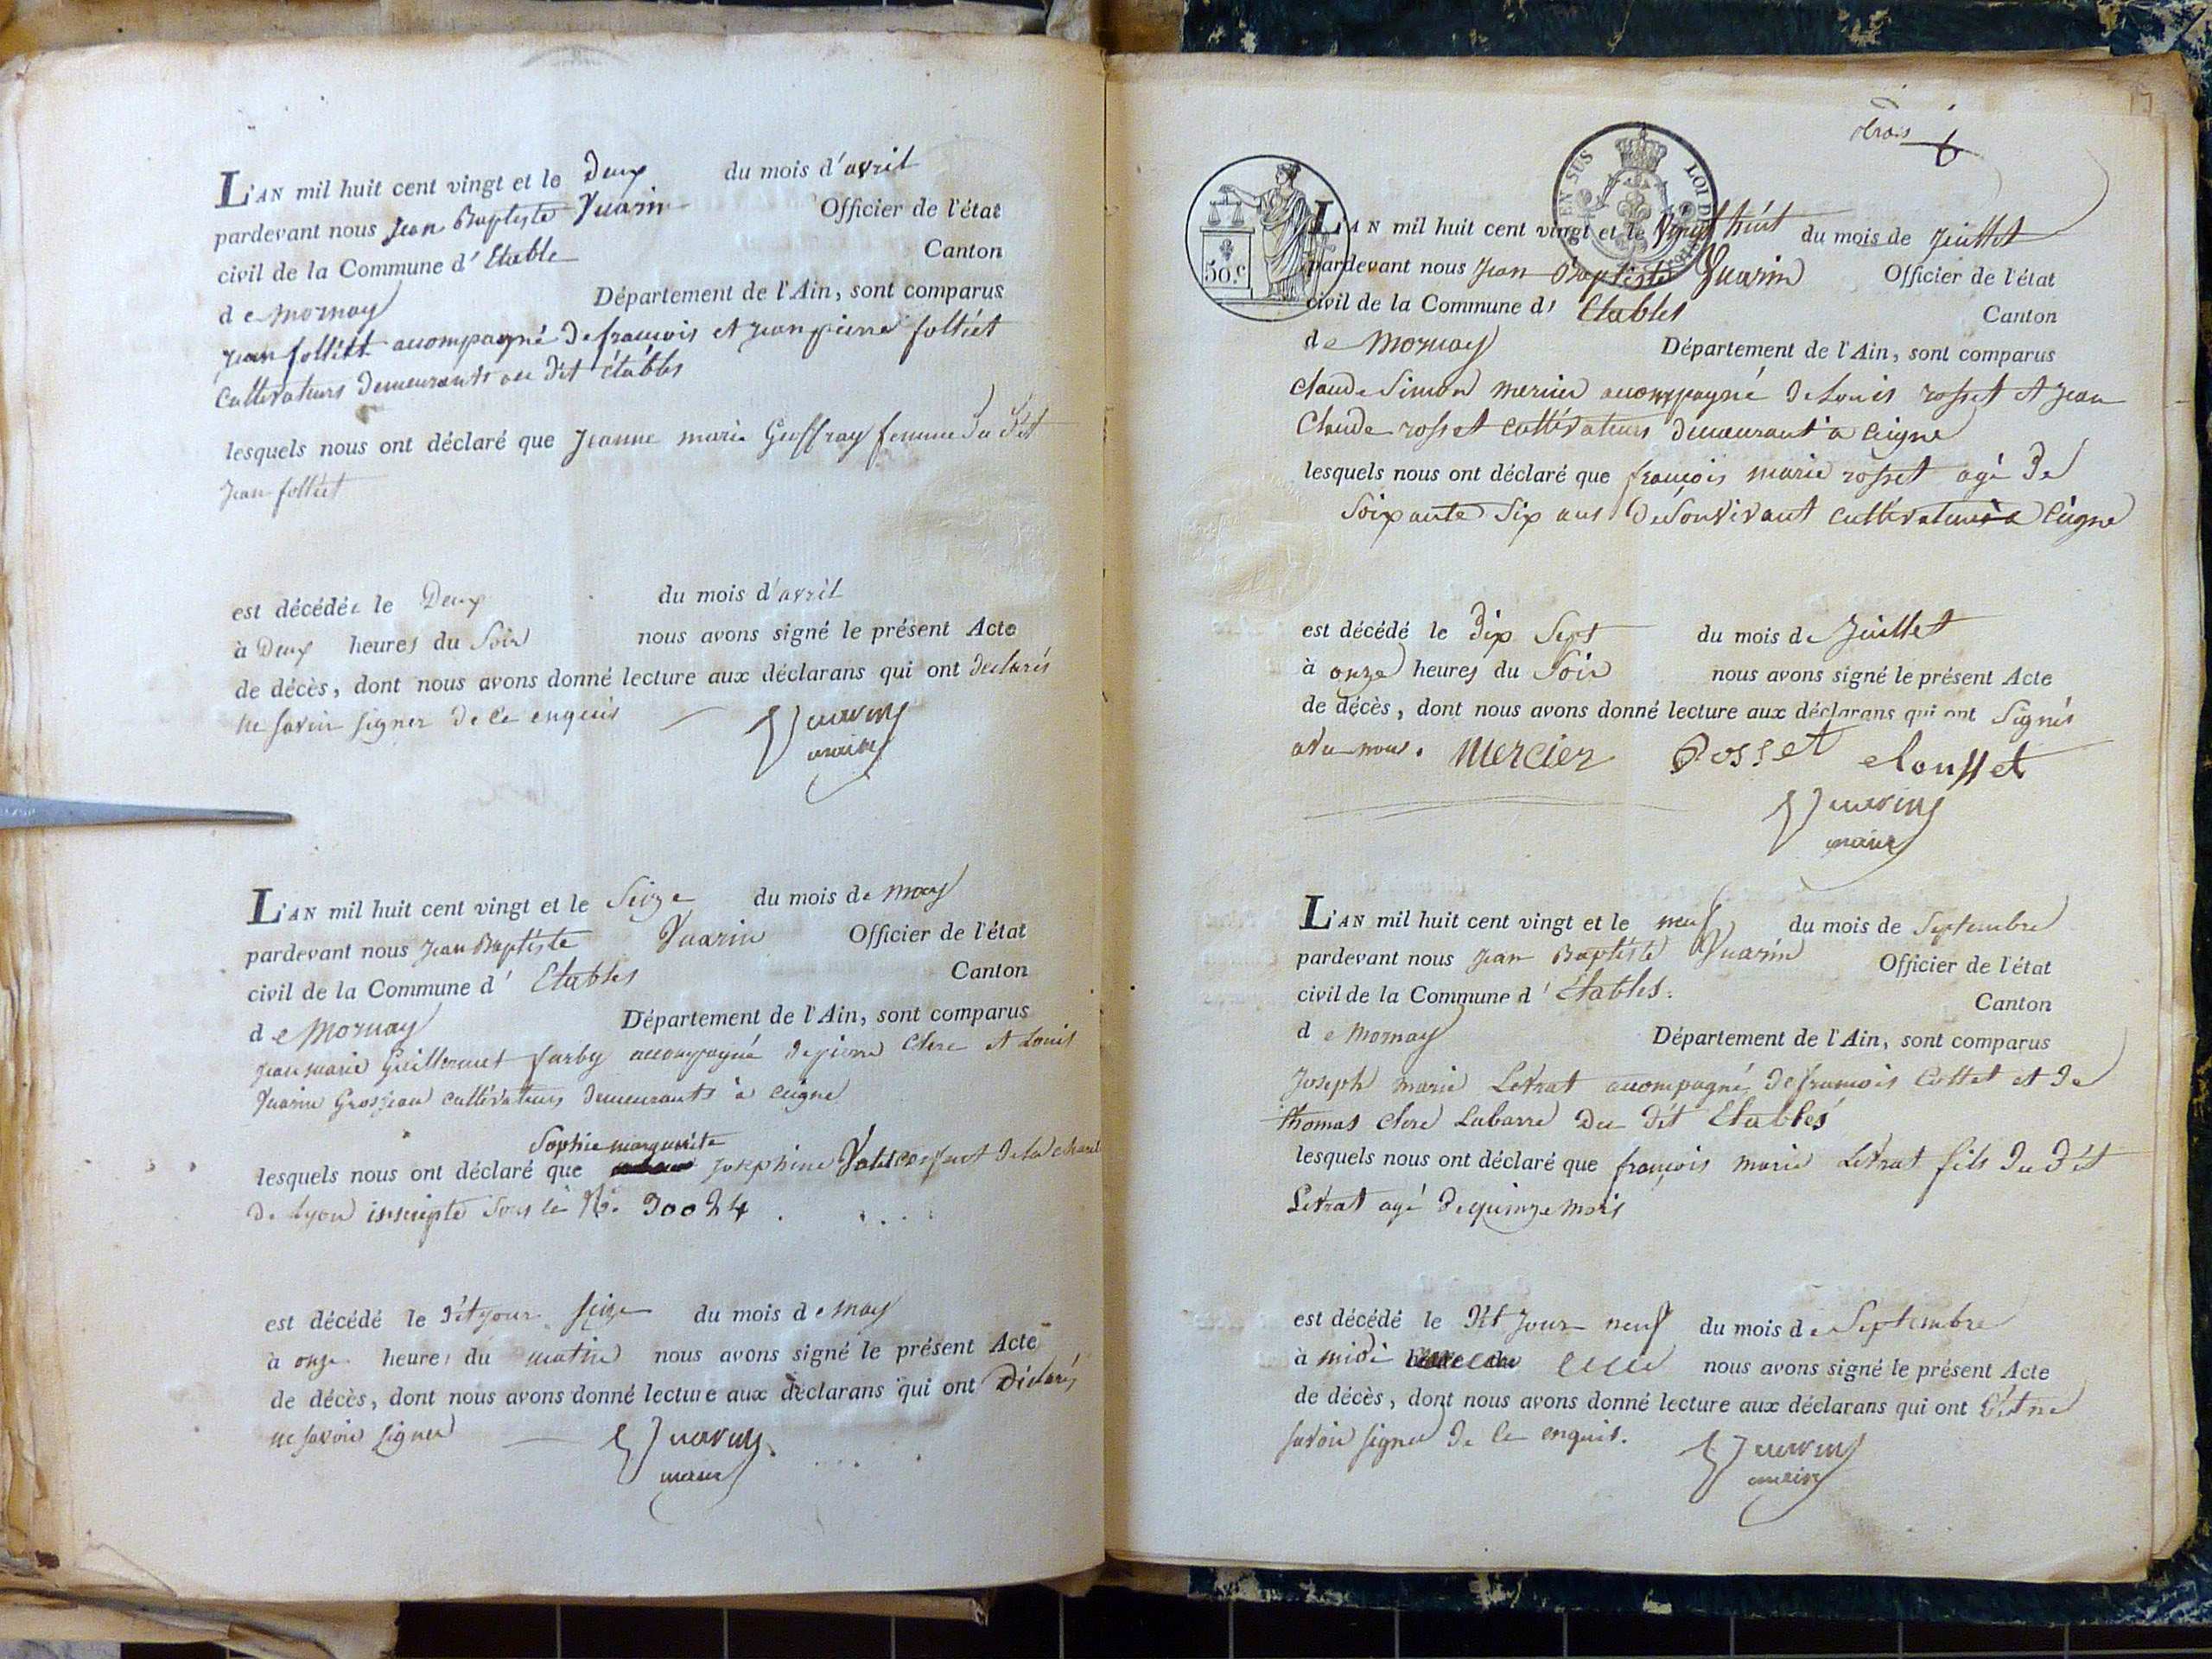 L'AN mil huit cent vingt et le Deux du mois d'avril
pardevant nous Jean Baptiste Vuarin Officier de l'état
civil de la Commune d'Etable Canton
de Mornay Département de l'Ain, sont comparus
Jean folliet accompagné de françois et Jean pierre folliet
Cultivateurs demeurants au dit étables
lesquels nous ont déclaré que Jeanne marie Geoffray femme du dit
Jean folliet
est décédée le Deux du mois d'avril
à Deux heures du Soir nous avons signé le présent Acte
de décès, dont nous avons donné lecture aux déclarans qui ont declarés
ne savoir signer de ce enquis Vuarin
maire
L'AN mil huit cent vingt et le Seize du mois de may
pardevant nous Jean Baptiste Vuarin Officier de l'état
civil de la Commune d'Etables Canton
de Mornay Département de l'Ain, sont comparus
Jean marie Guillermet furby accompagné de pierre Clere et Louis
Vuarin Grosjean cultivateurs demeurants à ceigne
Sophie marguerite
lesquels nous ont déclaré que Josephine enfant de la charité
de Lyon inscripte sous le N°. 30024
est décédé le dit jour seize du mois de may
à onze heures du matin nous avons signé le présent Acte
de décès, dont nous avons donné lecture aux déclarans qui ont Déclarés
ne savoir signer Vuarin
maire
trois
17
EN SUS LOI DE
50.c
L'AN mil huit cent vingt et le vingt huit du mois de Juillet
pardevant nous Jean Baptiste Vuarin Officier de l'état
civil de la Commune d'Etables Canton
de Mornay Département de l'Ain, sont comparus
Claude Simon mercier accompagné de Louis rosset et Jean
Claude rosset cultivateurs demeurant à Ceigne
lesquels nous ont déclaré que françois marie rosset agé de
Soixante Six ans de son vivant cultivateur à Ceigne
est décédé le dix Sept du mois de Juillet
à onze heures du Soir nous avons signé le présent Acte
de décès, dont nous avons donné lecture aux déclarans qui ont Signés
avec nous. Mercier Rosset
Vuarin
maire
L'AN mil huit cent vingt et le neuf du mois de Septembre
pardevant nous Jean Baptiste Vuarin Officier de l'état
civil de la Commune d'Etables. Canton
de Mornay Département de l'Ain, sont comparus
Joseph marie Létrat accompagné de françois Cottet et de
thomas clere Labarre du dit Etables
lesquels nous ont déclaré que françois marie Létrat fils du dit
Létrat agé de quinze mois
est décédé le dit jour neuf du mois de Septembre
à midi nous avons signé le présent Acte
de décès, dont nous avons donné lecture aux déclarans qui ont dit ne
savoir signer de ce enquis. Vuarin
maire